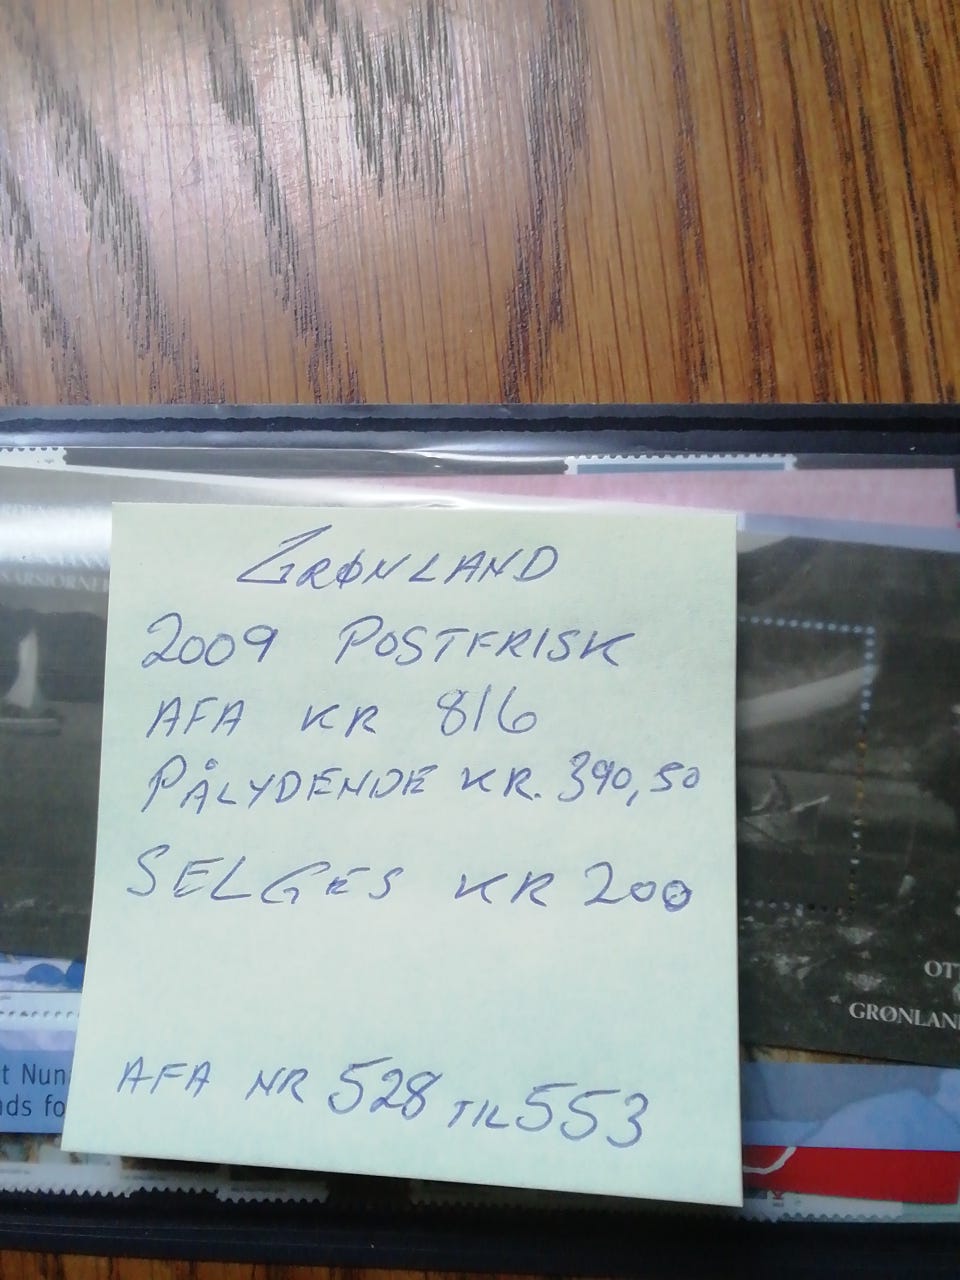 GRØNLAND
2009 POSTFRISK
AFA KR 816
PÅLYDENDE KR. 390,50
SELGES KR 200
AFA NR 528 TIL 553
OTT
GRØNLAN
t Nun
nds fo